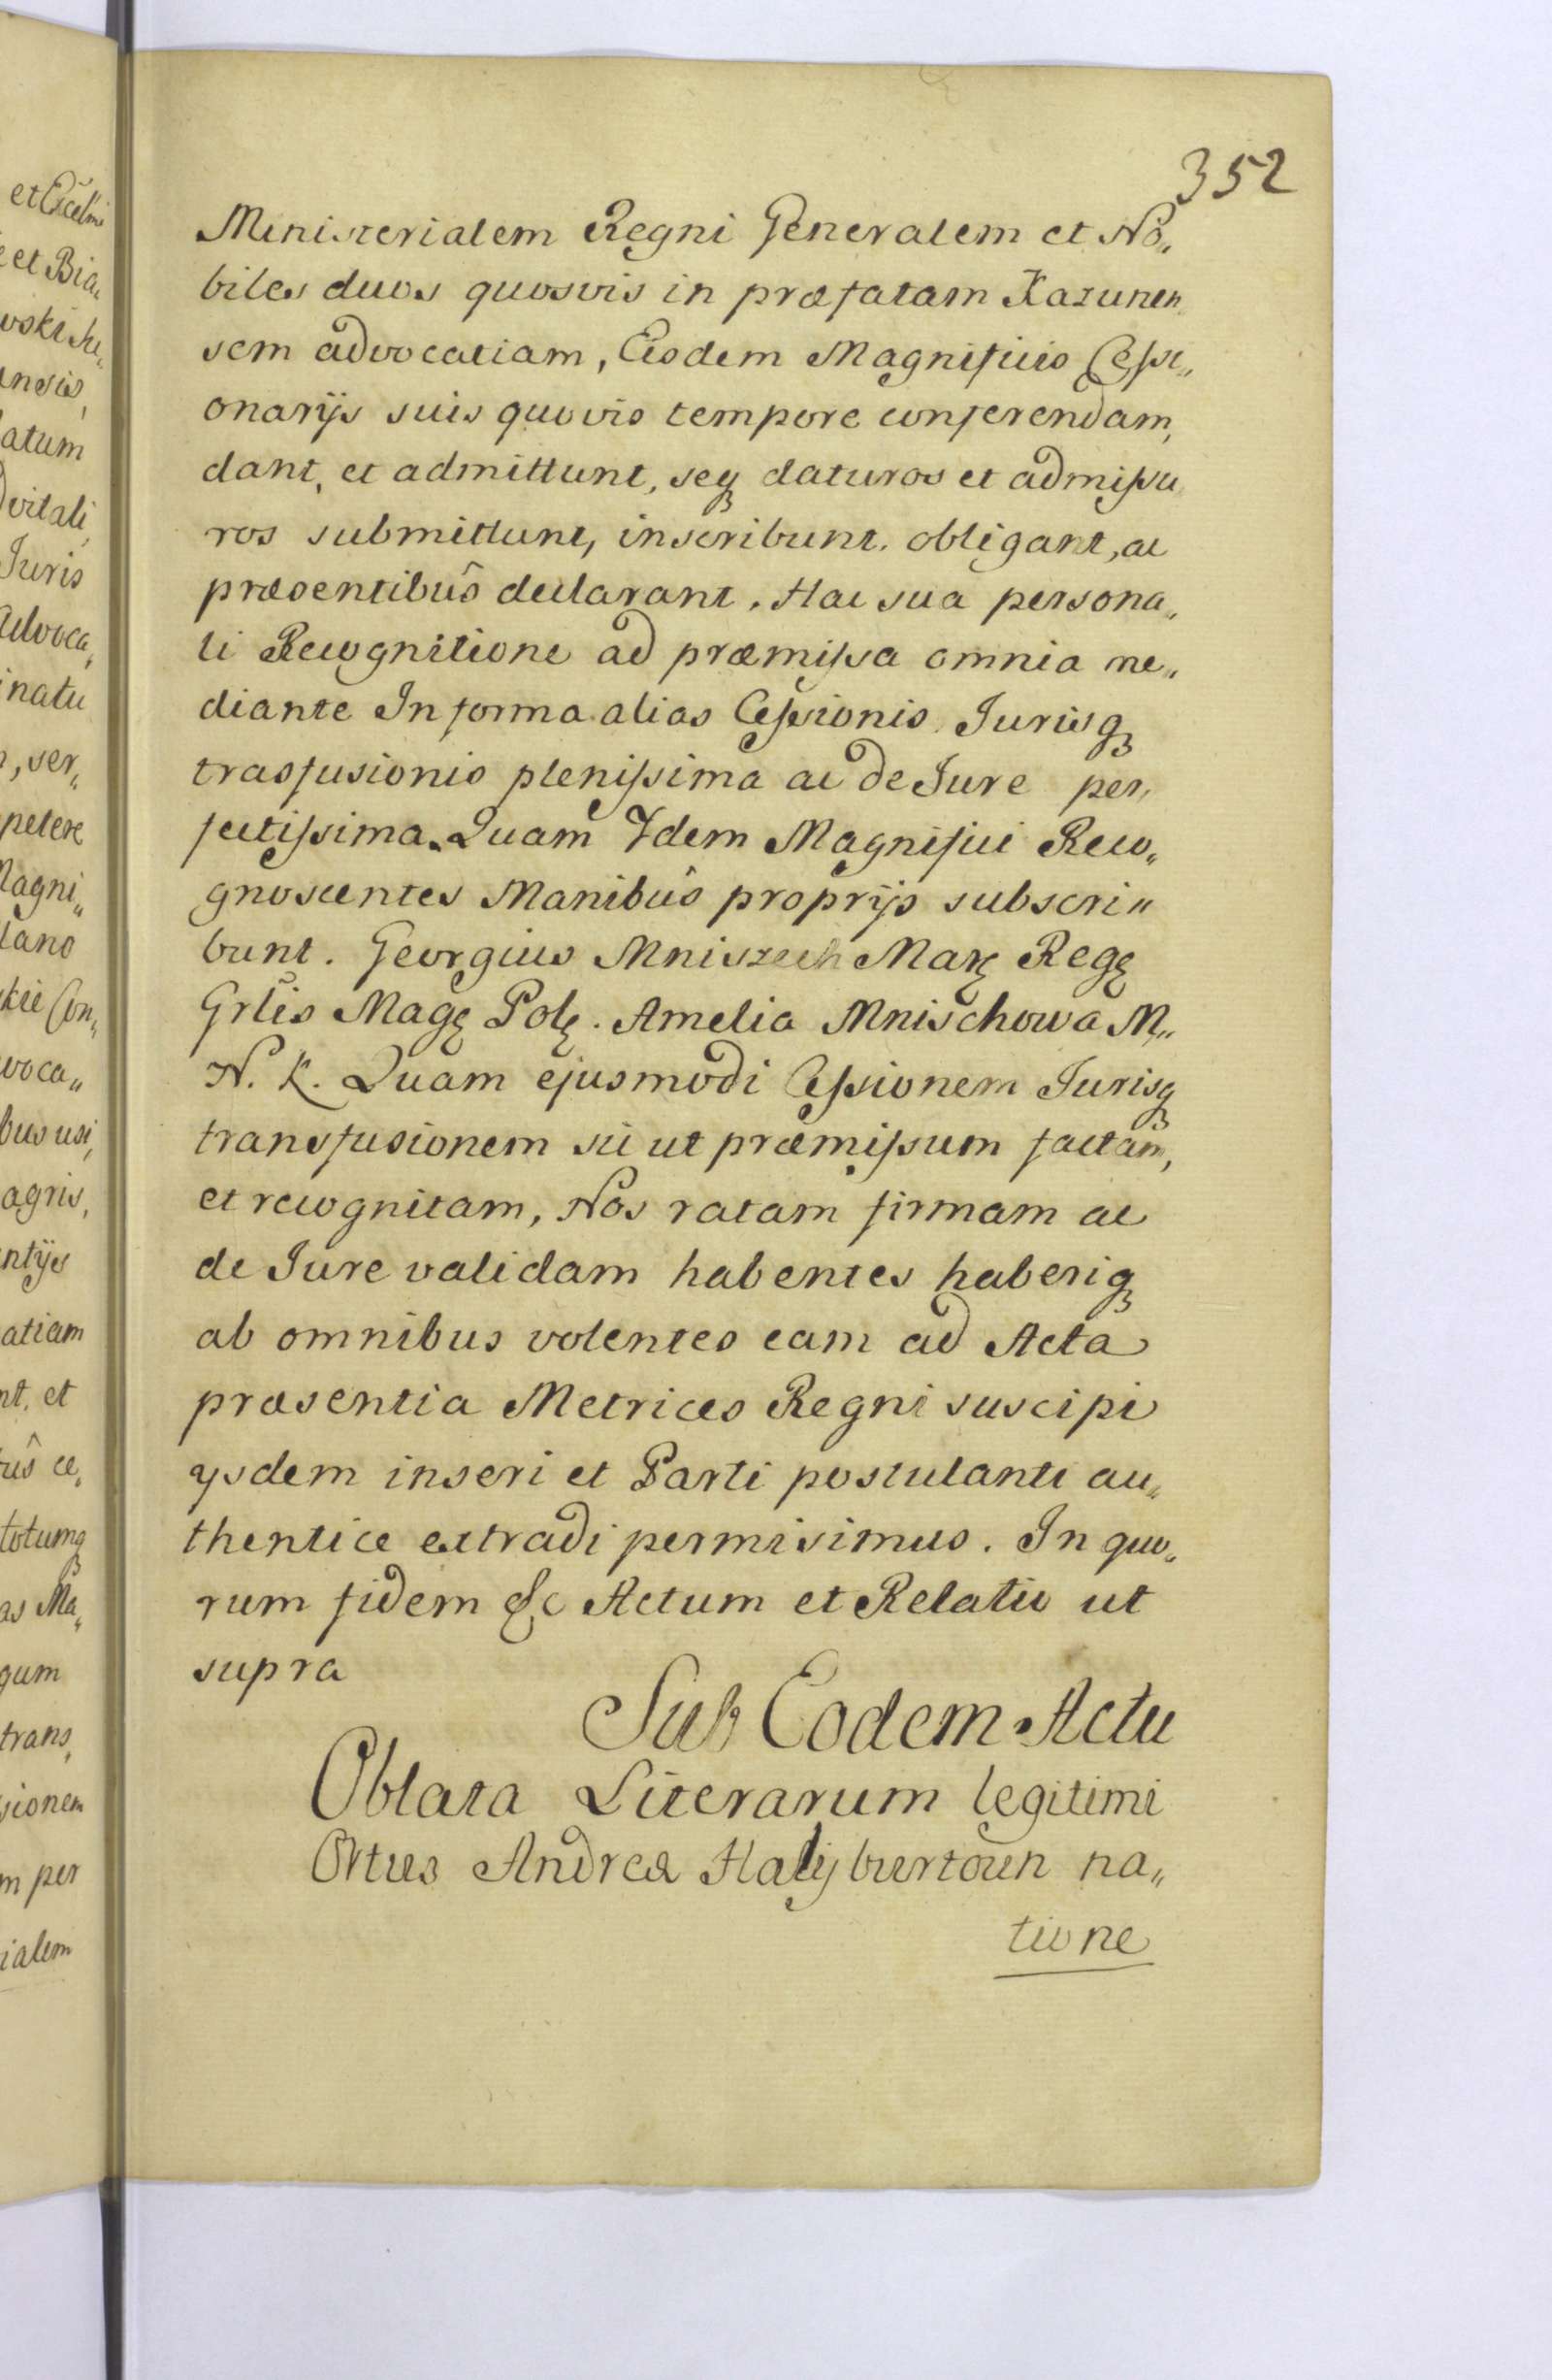 352
Ministerialem Regni Generalem et No„
biles duos quosvis in præfatam Kazunen
sem advocatiam, Eisdem Magnificis Cessi„
onarijs suis quovis tempore conferendam,
dant, et admittunt, seq daturos et admissu
ros submittunt, inscribunt, obligant, ac
præsentibûs declarant. Hac sua persona„
li Recognitione ad præmissa omnia me„
diante In forma alias Cessionis Jurisq
trasfusionis plenissima ac de Jure per„
fectissima. Quam Idem Magnifici Reco„
gnoscentes Manibûs proprijs subscri„
bunt. Georgius Mniszech Marę Regę
Grlis Magę Polę. Amelia Mnischowa M„
N. K. Quam ejusmodi Cessionem Jurisq
transfusionem sic ut præmissum factam,
et recognitam, Nos ratam firmam ac
de Jure validam habentes haberiq
ab omnibus volentes eam ad Acta
præsentia Metrices Regni suscipi
ysdem inseri et Parti postulanti au„
thentice extradi permisimus. In quo„
rum fidem &c Actum et Relatio ut
supra
Sub Eodem Actu
Oblata Literarum legitimi
Ortus Andreæ Halyburtoun na„
tione
et Excelmi
et Bia„
atum
Juris
advoca„
inatu
ser„
petere
Magni„
Con„
voca„
agris,
atiam
et
totumq
as Ma„
trans„
sionem
m per
ialem